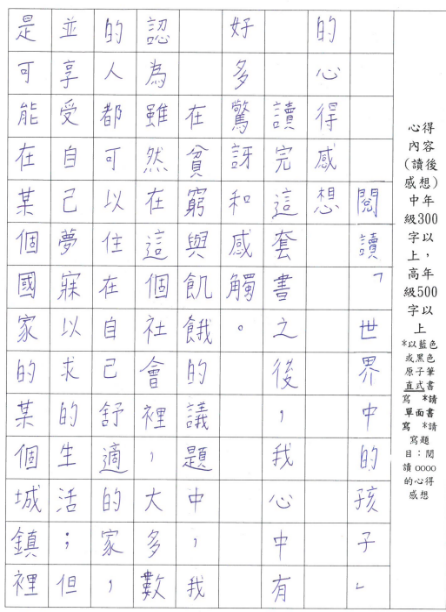 心得
內容
(讀後
感想)
中年
級300
字以
上，
高年
級500
字以
上
*以藍色
或黑色
原子筆
直式書
寫 *請
單面書
寫 *請
寫題
目：閱
讀 oooo
的心得
感想
閱讀「世界中的孩子」
的心得感想
讀完這套書之後，我心中有
好多驚訝和感觸。
在貧窮與飢餓的議題中，我
認為雖然在這個社會裡，大多數
的人都可以住在自己舒適的家，
並享受自己夢寐以求的生活；但
是可能在某個國家的某個城鎮裡